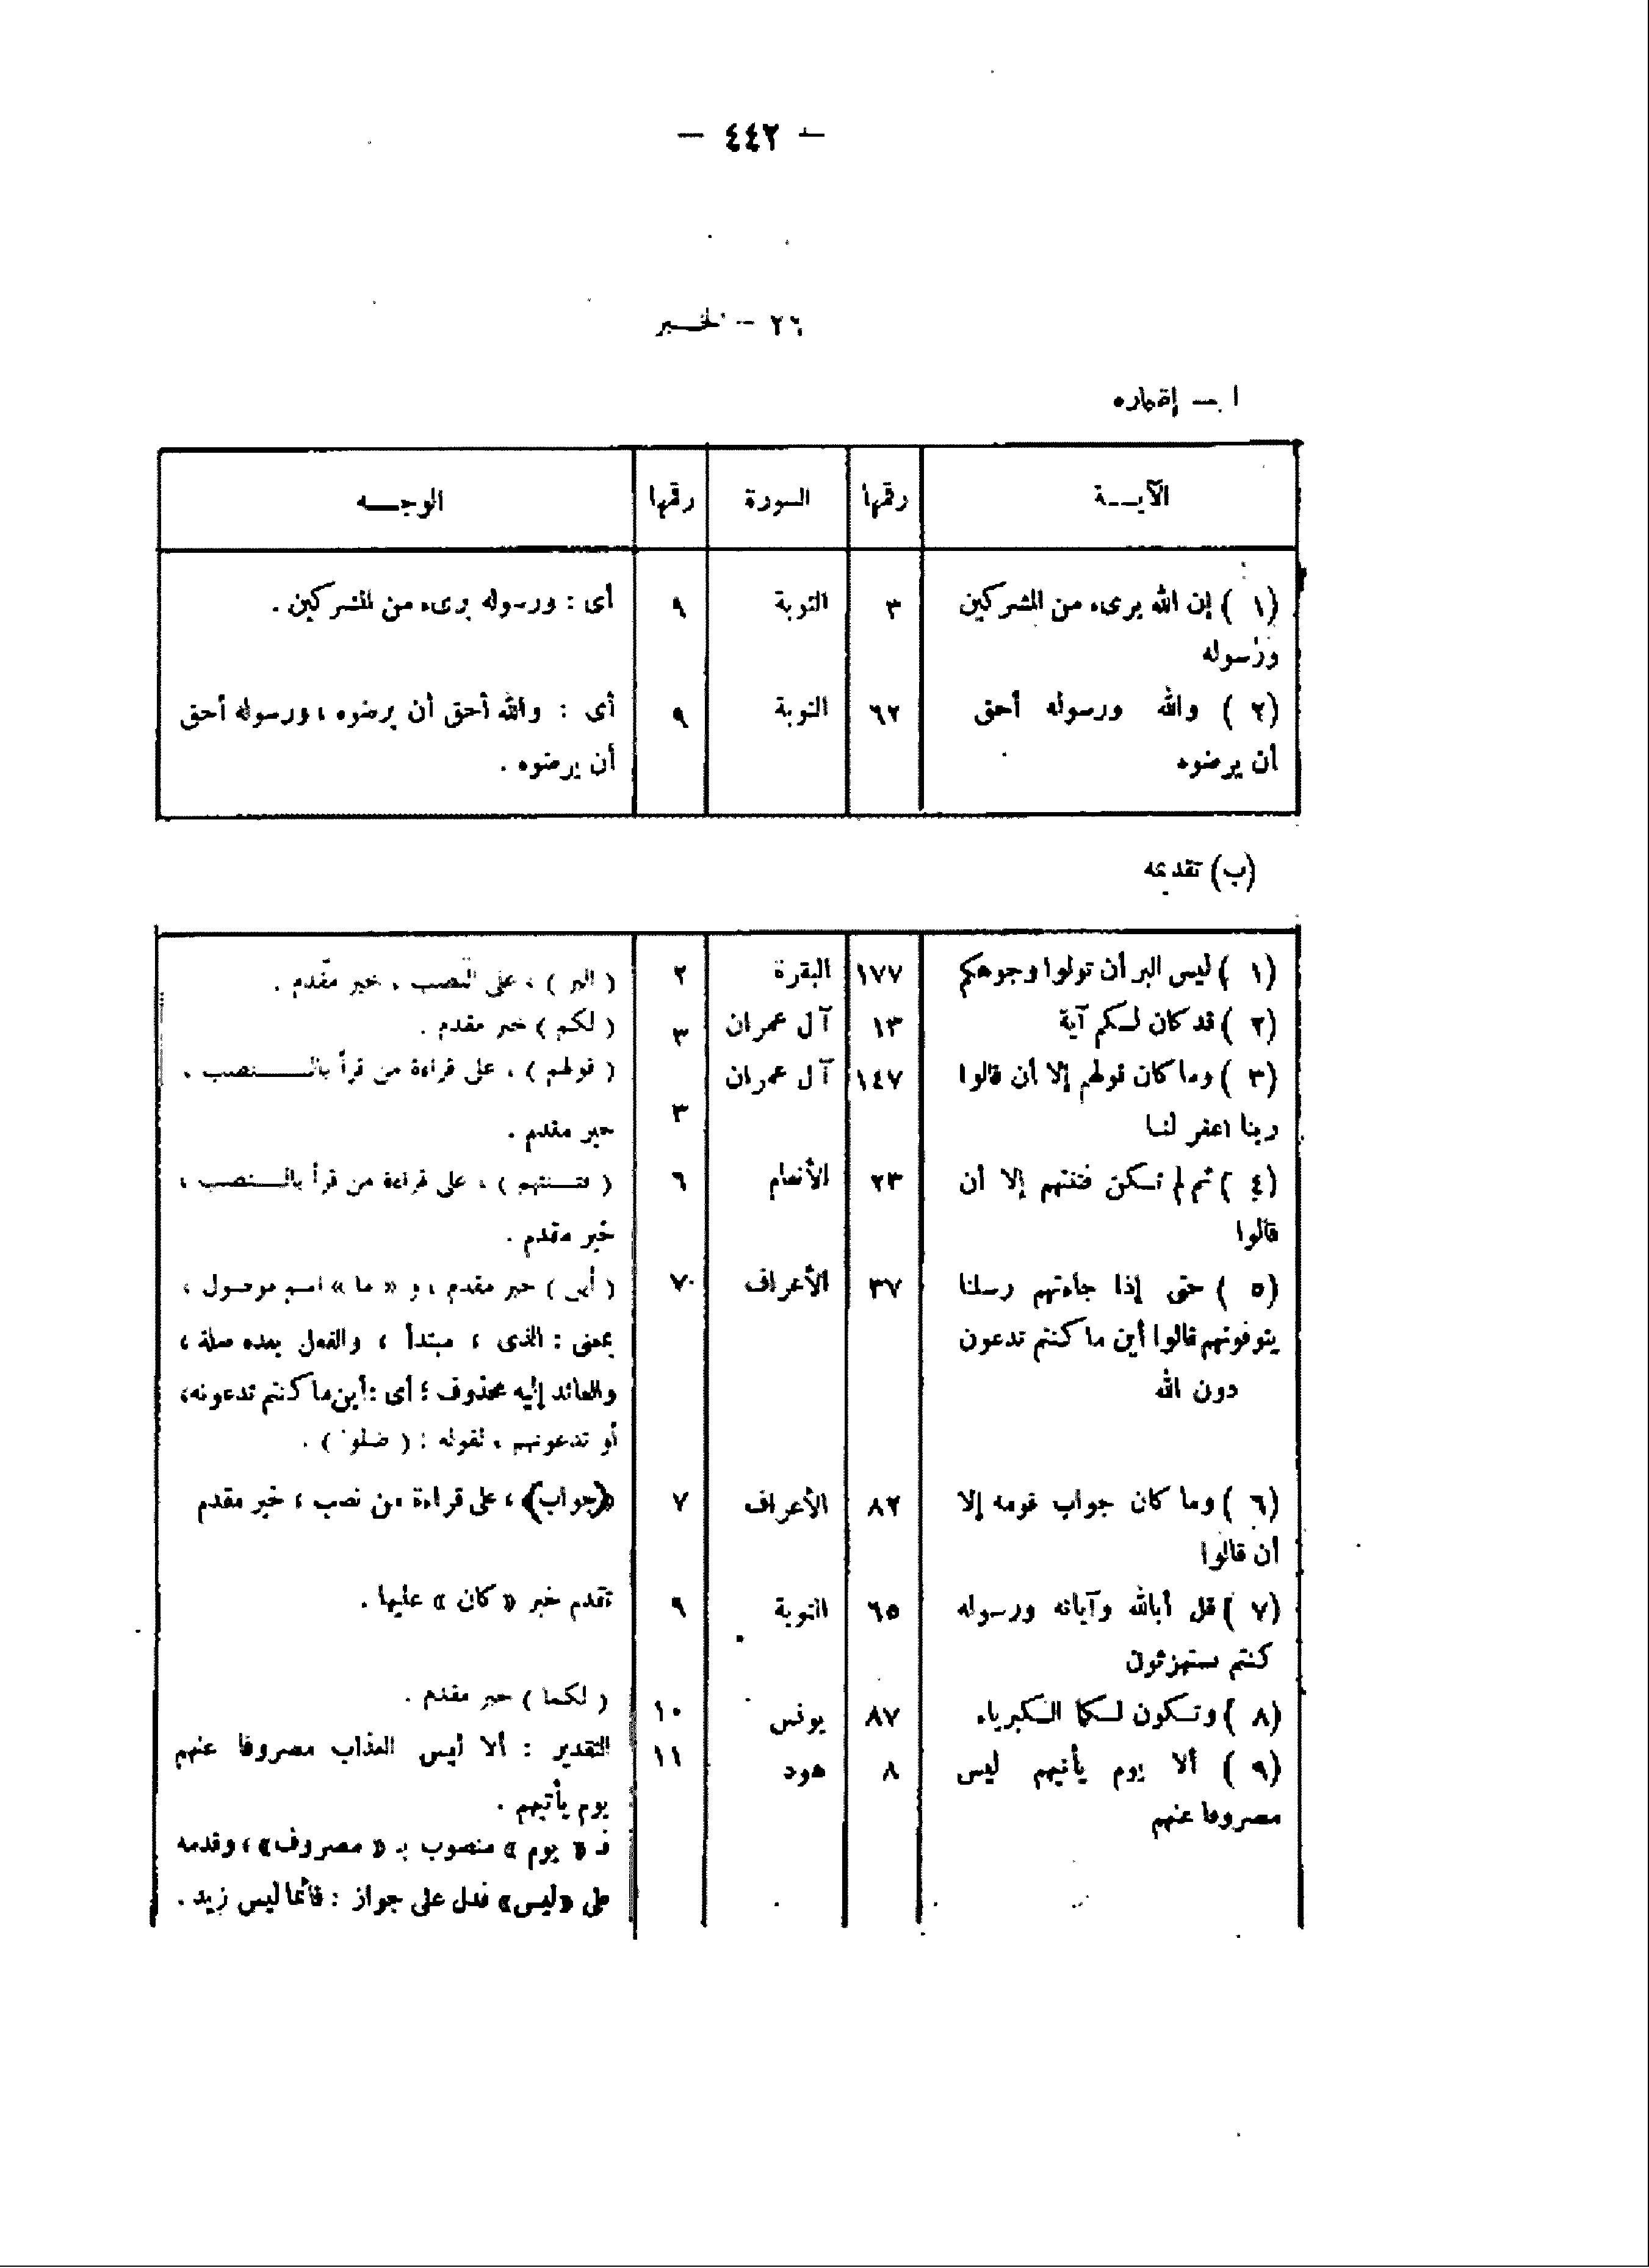 — ٤٤٢ —
٢٦ — الخـبر
ا — إضماره
الآيــة رقمها السورة رقمها الوجــه
(١) إن الله برىء من المشركين ٣ التوبة ٩ أى : ورسوله برىء من المشركين .
ورسوله
(٢) والله ورسوله أحق ٦٢ التوبة ٩ أى : والله أحق أن يرضوه ، ورسوله أحق
أن يرضوه أن يرضوه .
(ب) تقديمه
(١) ليس البر أن تولوا وجوهكم ١٧٧ البقرة ٢ ( البر ) ، على النصب ، خبر مقدم .
(٢) قد كان لـكم آية ١٣ آل عمران ٣ ( لكم ) خبر مقدم .
(٣) وما كان قولهم إلا أن قالوا ١٤٧ آل عمران ٣ ( قولهم ) ، على قراءة من قرأ بالـنصب ،
ربنا اغفر لنـا خبر مقدم .
(٤) ثم لم تـكن فتنتهم إلا أن ٢٣ الأنعام ٦ ( فتـنتهم ) ، على قراءة من قرأ بالـنصب ،
قالوا خبر مقدم .
(٥) حتى إذا جاءتهم رسلنا ٣٧ الأعراف ٧ ( أين ) خبر مقدم ، و « ما » اسم موصول ،
يتوفونهم قالوا أين ما كنتم تدعون بمعنى : الذى ، مبتدأ ، والفعل بعده صلة ،
دون الله والعائد إليه محذوف ؛ أى : أين ما كنتم تدعونه،
أو تدعونهم ، لقوله : ( ضلوا ) .
(٦) وما كان جواب قومه إلا ٨٢ الأعراف ٧ «(جواب)» ، على قراءة من نصب ، خبر مقدم
أن قالوا
(٧) قل أبالله وآياته ورسوله ٦٥ التوبة ٩ تقدم خبر « كان » عليها .
كنتم تستهزئون
(٨) وتـكون لـكما الـكبرياء ٨٧ يونس ١٠ ( لكما ) خبر مقدم .
(٩) ألا يوم يأتيهم ليس ٨ هود ١١ التقدير : ألا ليس العذاب مصروفا عنهم
مصروفا عنهم يوم يأتيهم .
فـ « يوم » منصوب بـ « مصروف» ، وقدمه
على «ليس» فدل على جواز : قائما ليس زيد .